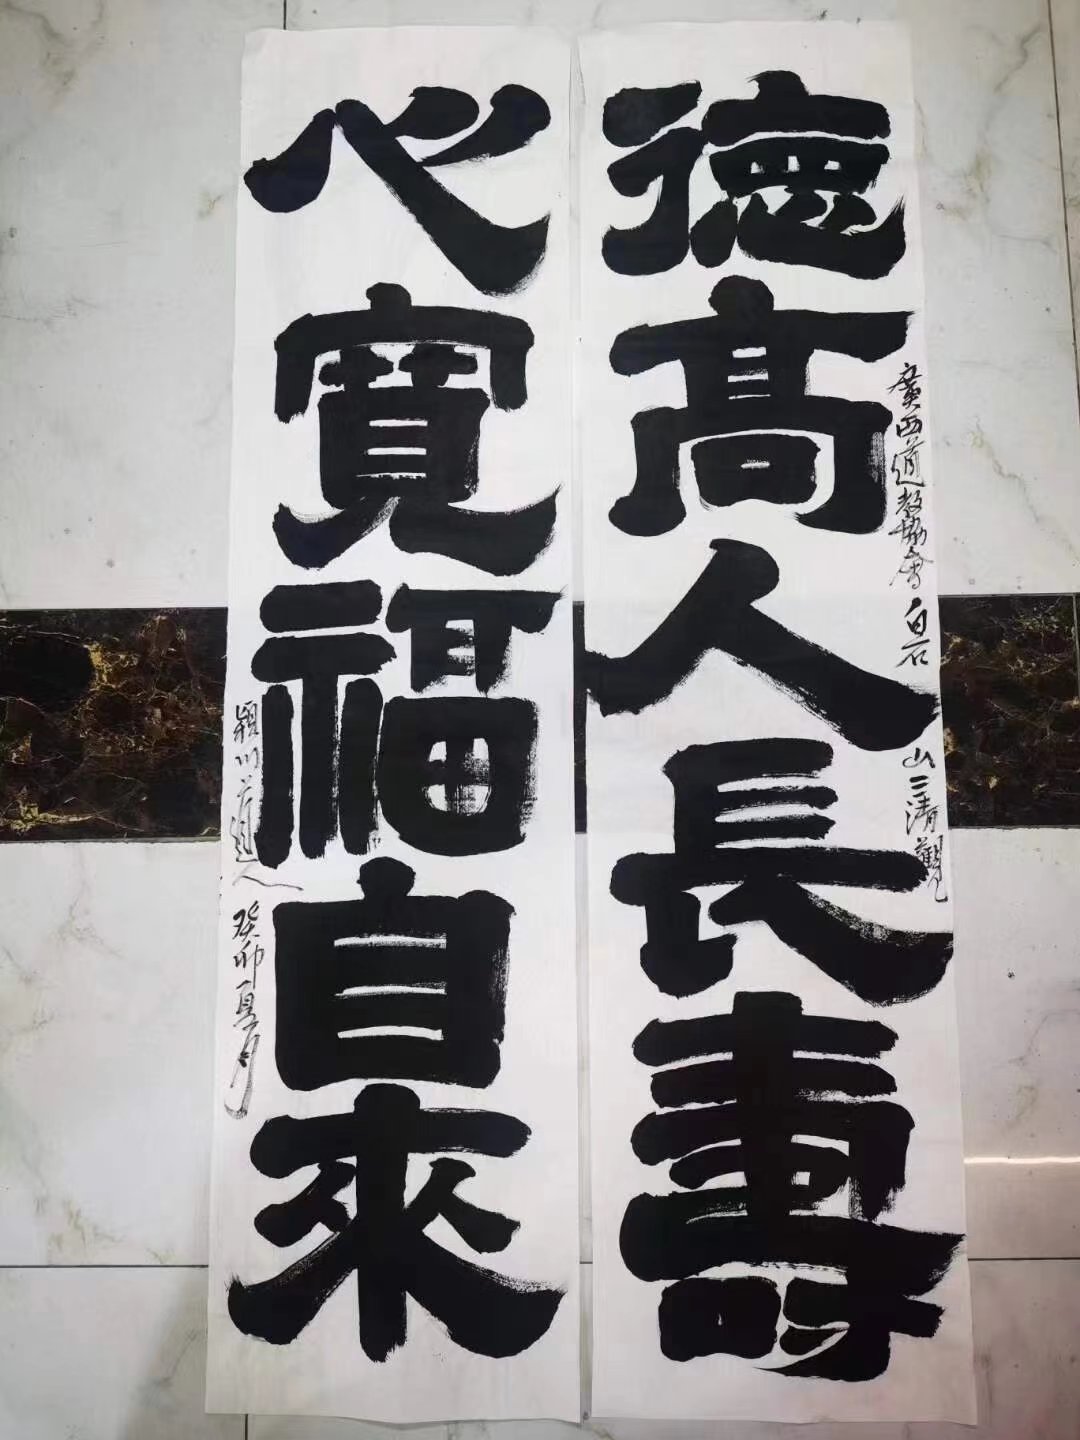 德高人長壽
廣西道教協會白石山三清觀
心寬福自來
潁川道人癸卯夏月